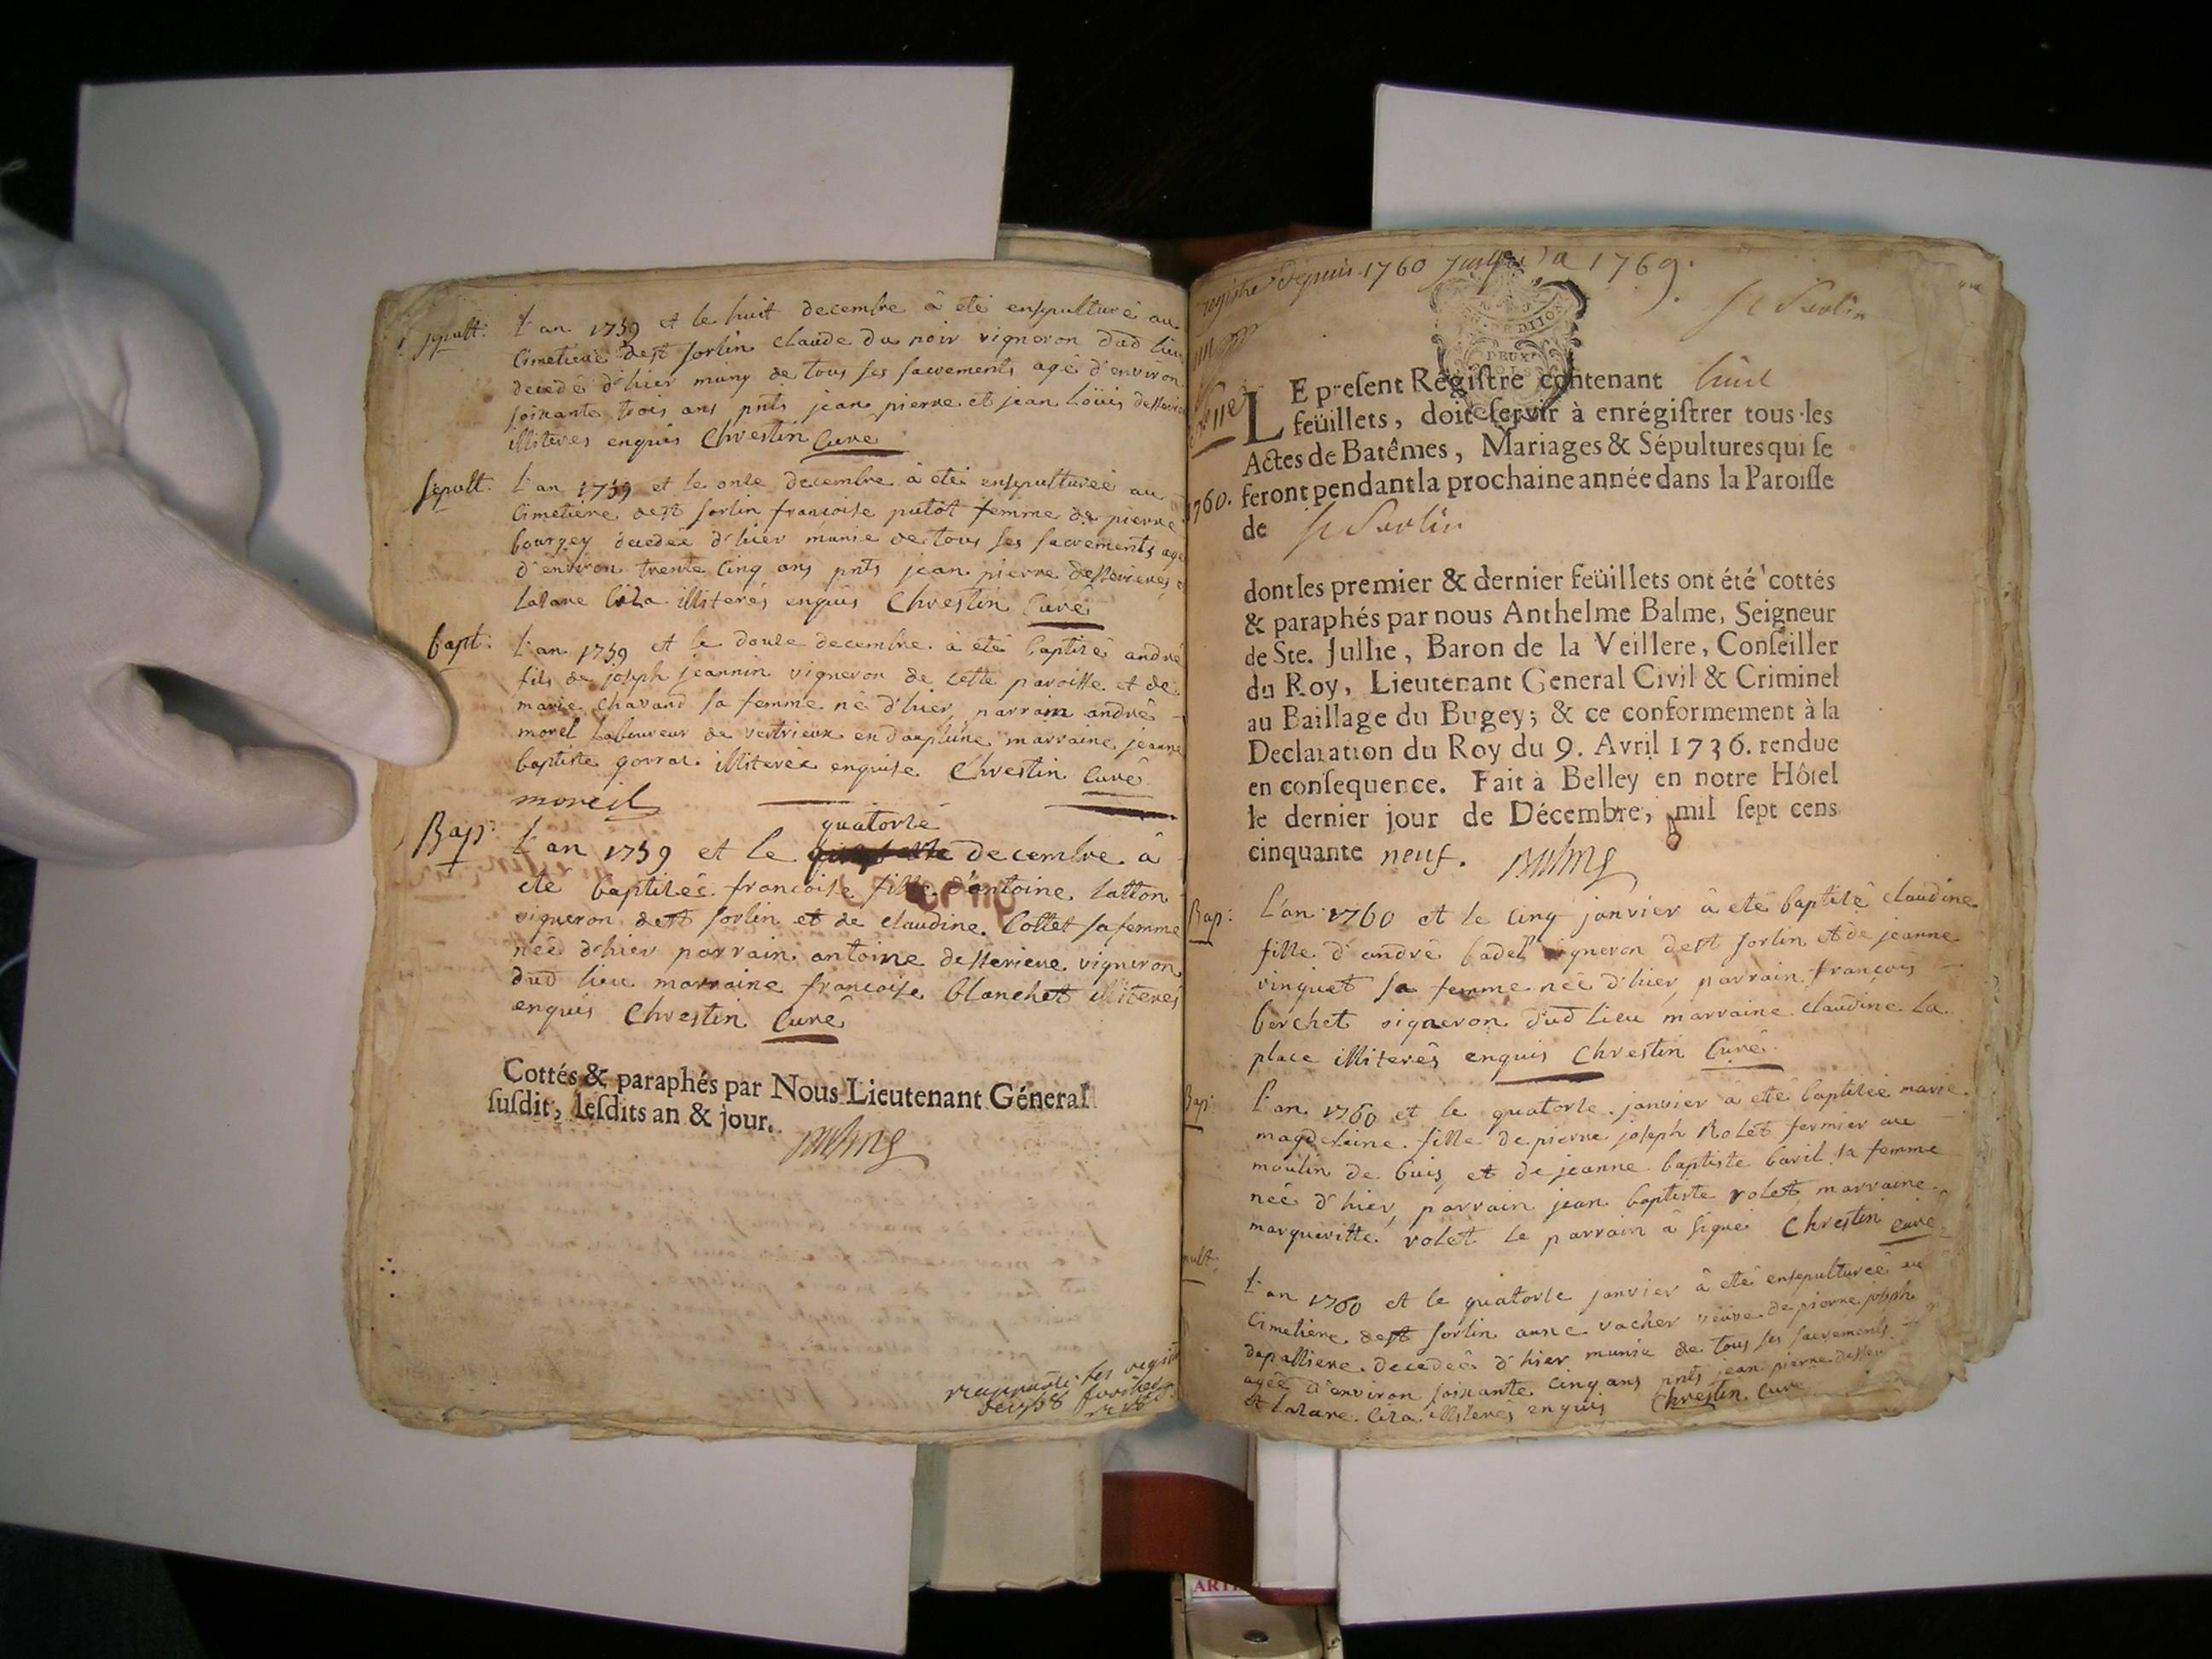 sepult: L'an 1759 et le huit decembre â eté ensepulturé au
Cimetiere dest sorlin claude du noir vigneron dud lieu
decedé d'hier muny de tous ses sacrements agé d'environ
soixante trois ans pnts jean pierre et jean Loüis
illiteres enquis Chrestin Curé
sepult: L'an 1759 et le onze decembre â eté ensepulturéé au
Cimetiere dest sorlin francoise putot femme de pierre
bourgey decedéé d'hier munie de tous ses sacrements agé
d'environ trente Cinq ans pnts jean pierre desserieres
Lazare illiterés enquis Chrestin Curé
bapt: L'an 1759 et le douze decembre â eté baptizé andré
fils de joseph jeannin vigneron de cette paroisse et de
marie Chavand sa femme né d'hier parrain andré
morel Laboureur de vertrieux en dauphiné marraine jeanne
baptiste gorrat illiteréé enquise Chrestin Curé
moreil
quatorze
Bap: L'an 1759 et le decembre â
eté baptizéé francoise fille d'antoine Latton
vigneron dest sorlin et de claudine Collet sa femme
néé d'hier parrain antoine desseriere vigneron
dud lieu marraine francoise blanchet illiterés
enquis Chrestin Curé
Cottés & paraphés par Nous Lieutenant Géneral
susdit, lesdits an & jour.
Balme
registre depuis 1760 jusqu'a 1769.
St Sorlin
DEUX
LE present Régistre contenant huit
feüillets, doit servir à enrégistrer tous les
Actes de Batêmes, Mariages & Sépultures qui se
1760. feront pendant la prochaine année dans la Paroisse
de St Sorlin
dont les premier & dernier feüillets ont été cottés
& paraphés par nous Anthelme Balme, Seigneur
de Ste. Jullie, Baron de la Veillere, Conseiller
du Roy, Lieutenant General Civil & Criminel
au Baillage du Bugey; & ce conformement à la
Declaration du Roy du 9. Avril 1736. rendue
en consequence. Fait à Belley en notre Hôtel
le dernier jour de Décembre, mil sept cens
cinquante neuf. Balme
Bap: L'an 1760 et le Cinq janvier â eté baptizé claudine
fille d'andré badel vigneron dest sorlin et de jeanne
vinquet sa femme néé d'hier parrain françois
berchet vigneron dud Lieu marraine claudine La
place illiterés enquis Chrestin Curé
Bap: L'an 1760 et le quatorze janvier â eté baptizéé marie
magdeleine fille de pierre joseph Rolet fermier au
moulin de buis, et de jeanne baptiste baril sa femme
néé d'hier, parrain jean baptiste rolet, marraine
margueritte rolet le parrain â signé Chrestin Curé
L'an 1760 et le quatorze janvier â eté ensepulturéé au
Cimetiere dest sorlin anne vacher veuve de pierre joseph
depalliere decedéé d'hier munie de tous ses sacrements
agéé d'environ soixante Cinq ans pnts jean pierre
et Lazare illiterés enquis Chrestin Curé